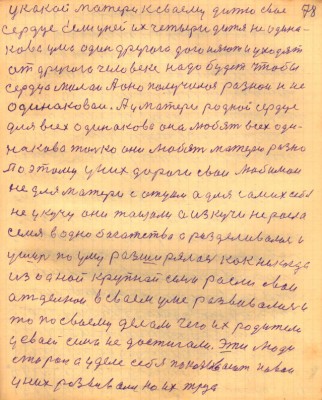 у какой матери к своему дитю свое 78
сердце семи дней их четвери дитя не одина-
кова ум один другого догоняют и уходят
от другого человеке надо будет чтобы
сердца А оно получился разной и не
одинаковаи. А у матери родной сердце
для всех одинакова она любят всех оди-
накава только они любят матери разно
Поэтому у них дороги сваи любимаи
не для матери с отцам а для самих себя
не у кучу они тащат а из кучи не росла
семя в одно богатство а разделивалась и
ушир по уму разширялась как никогда
из одной крупной семи расли сваи
отделеной в сваем уме развивались
то по сваему делам чего их родители
у сваей семь не достигали. Эти люди
старом а у деле себя показывают новаи
у них розвивали но их труд